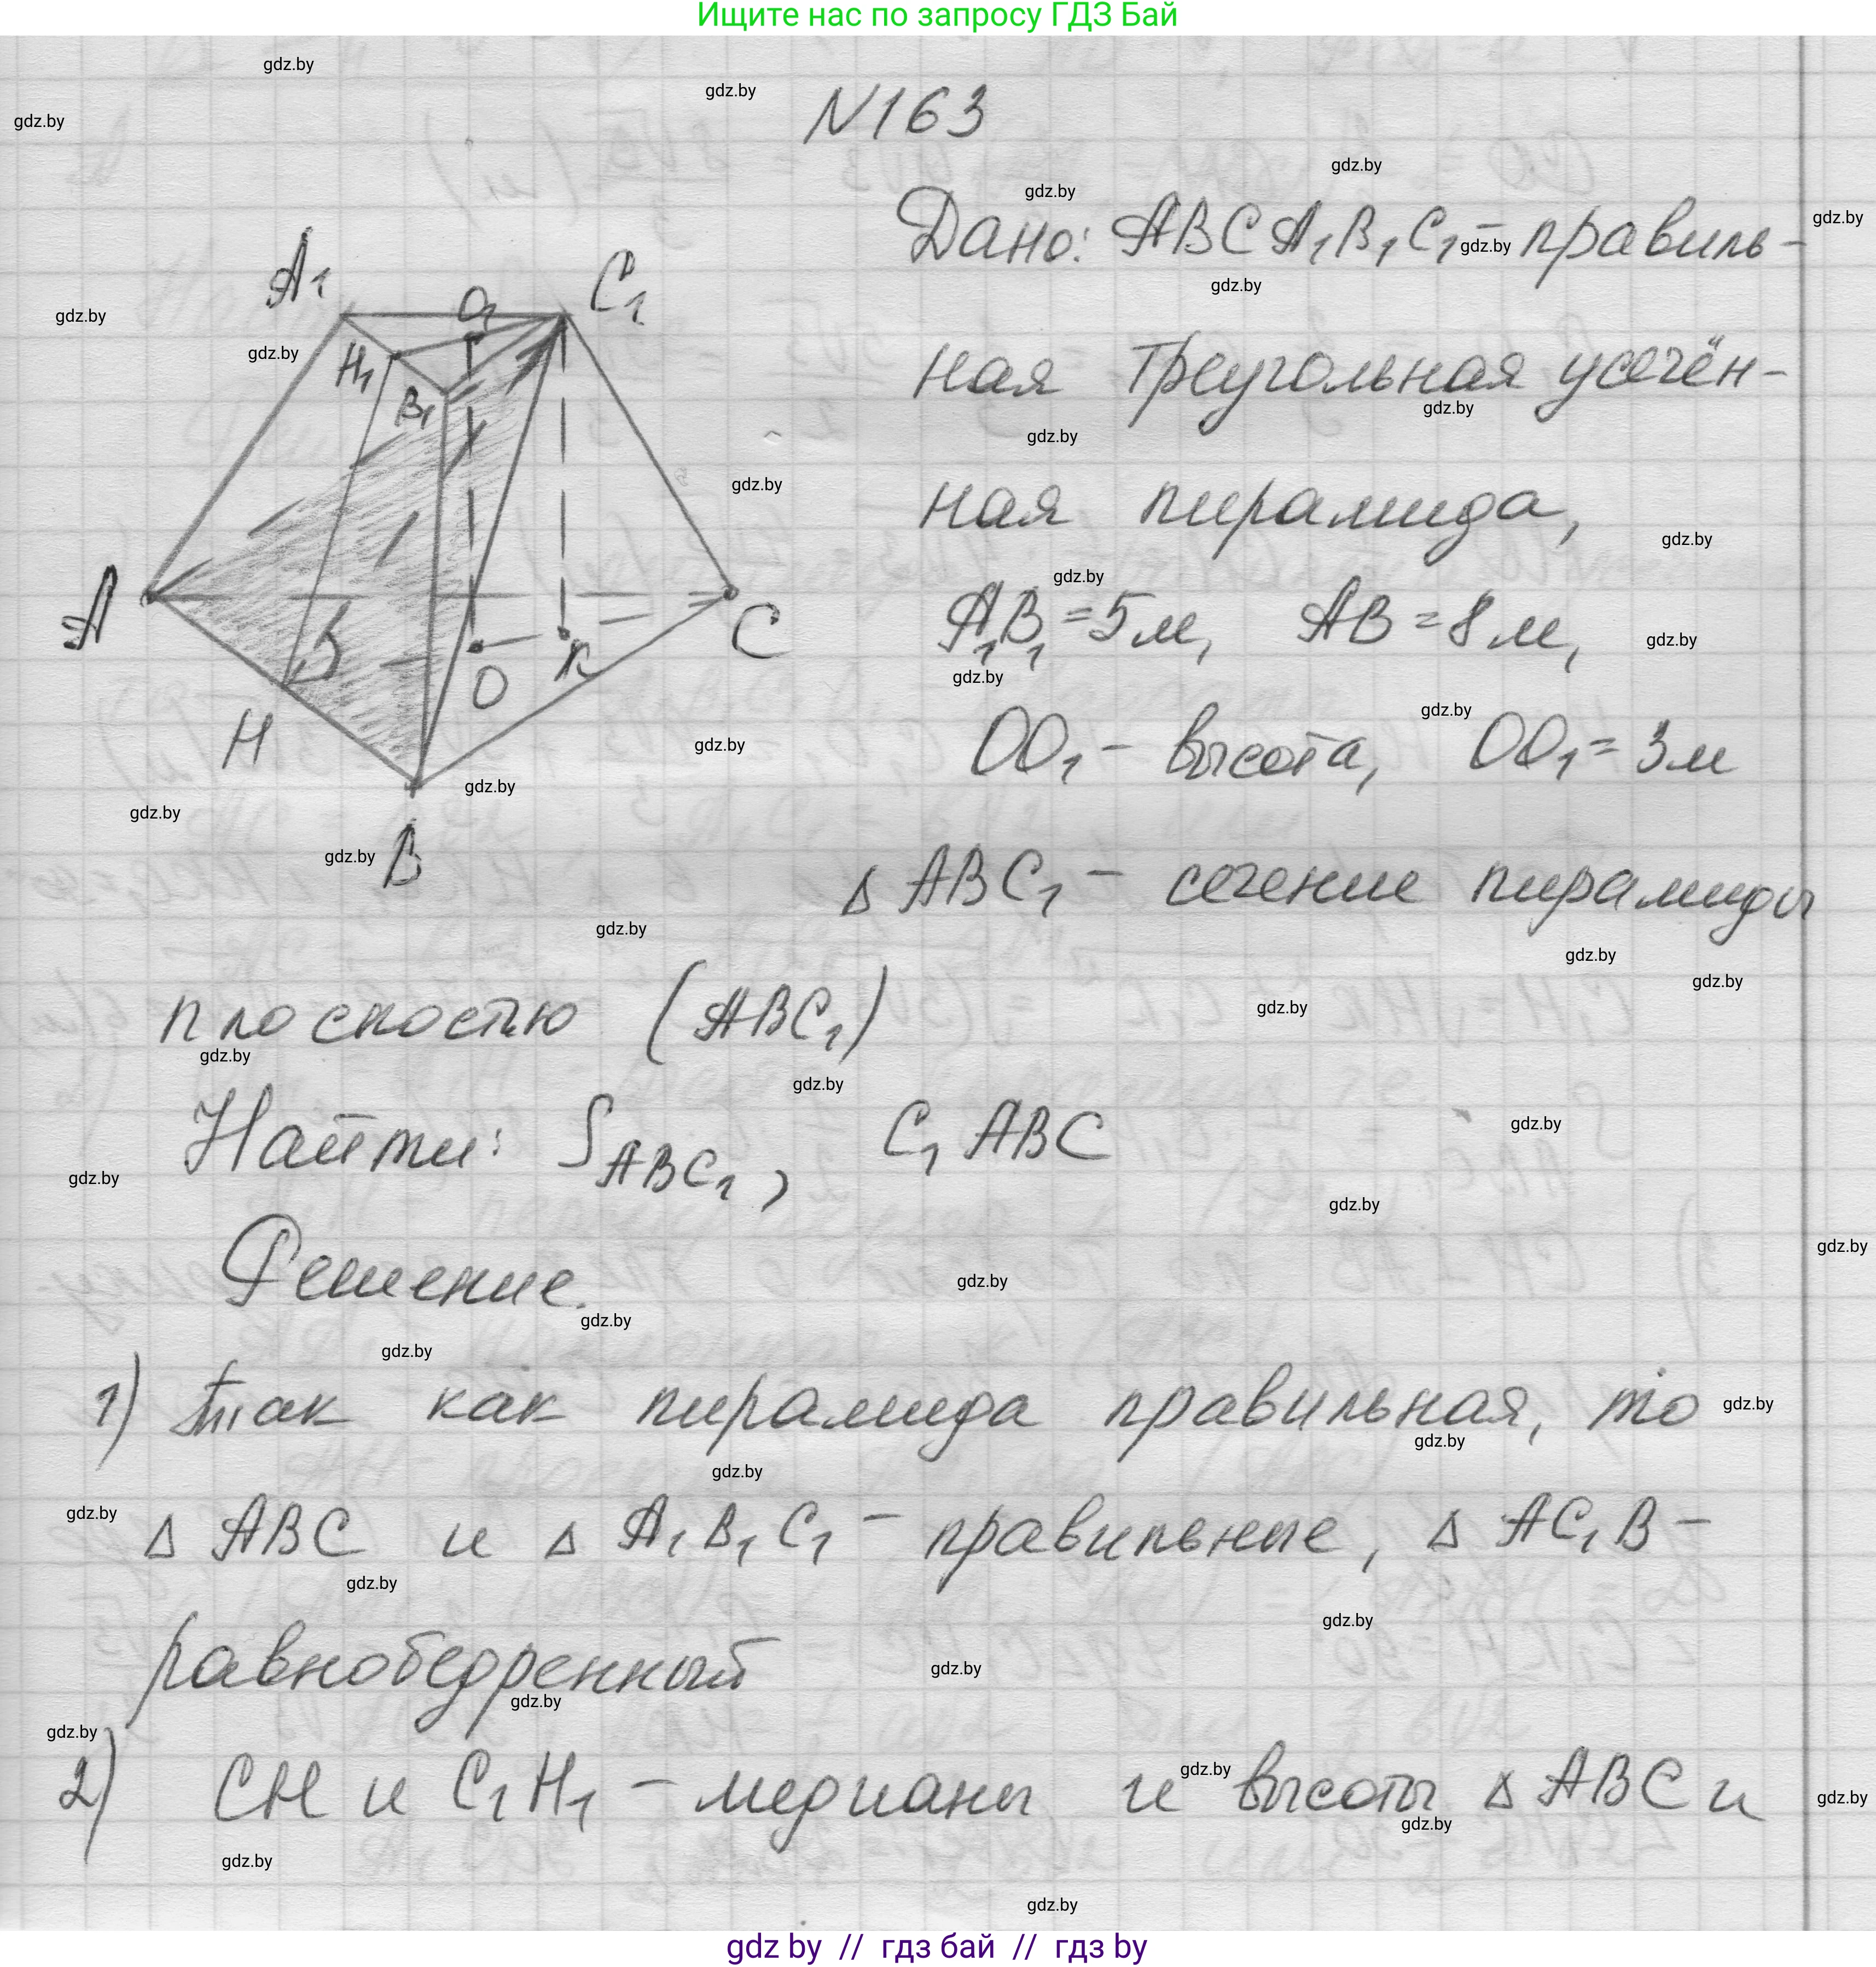 Ищите нас по запросу ГДЗ Бай
N163
Дано: ABCA₁B₁C₁ - правиль-
ная треугольная усечён-
ная пирамида,
A₁B₁ = 5м, AB = 8м,
OO₁ - высота, OO₁ = 3м
Δ ABC₁ - сечение пирамиды
плоскостью (ABC₁)
Найти: S ABC₁, C₁ABC
Решение.
1) так как пирамида правильная, то
Δ ABC и Δ A₁B₁C₁ - правильные, Δ AC₁B -
равнобедренный
2) CH и C₁H₁ - медианы и высоты Δ ABC и
A₁
O₁
C₁
H₁
B₁
A
C
O
K
H
B
gdz.by
gdz by // гдз бай // гдз by